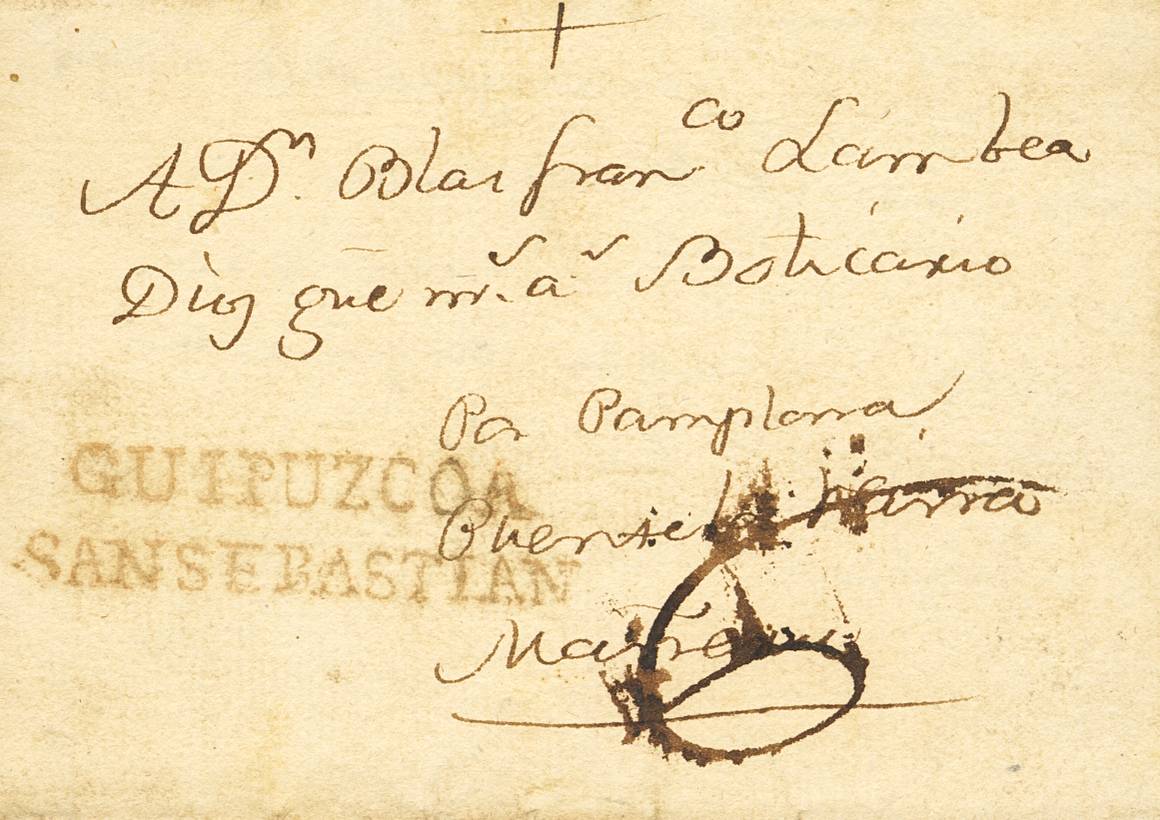 +
A Dn. Blas franco Lambea
Dios gue ms. as Boticario
Por Pamplona
GUIPUZCOA
Puente la
SANSEBASTIAN
Mañeru
6